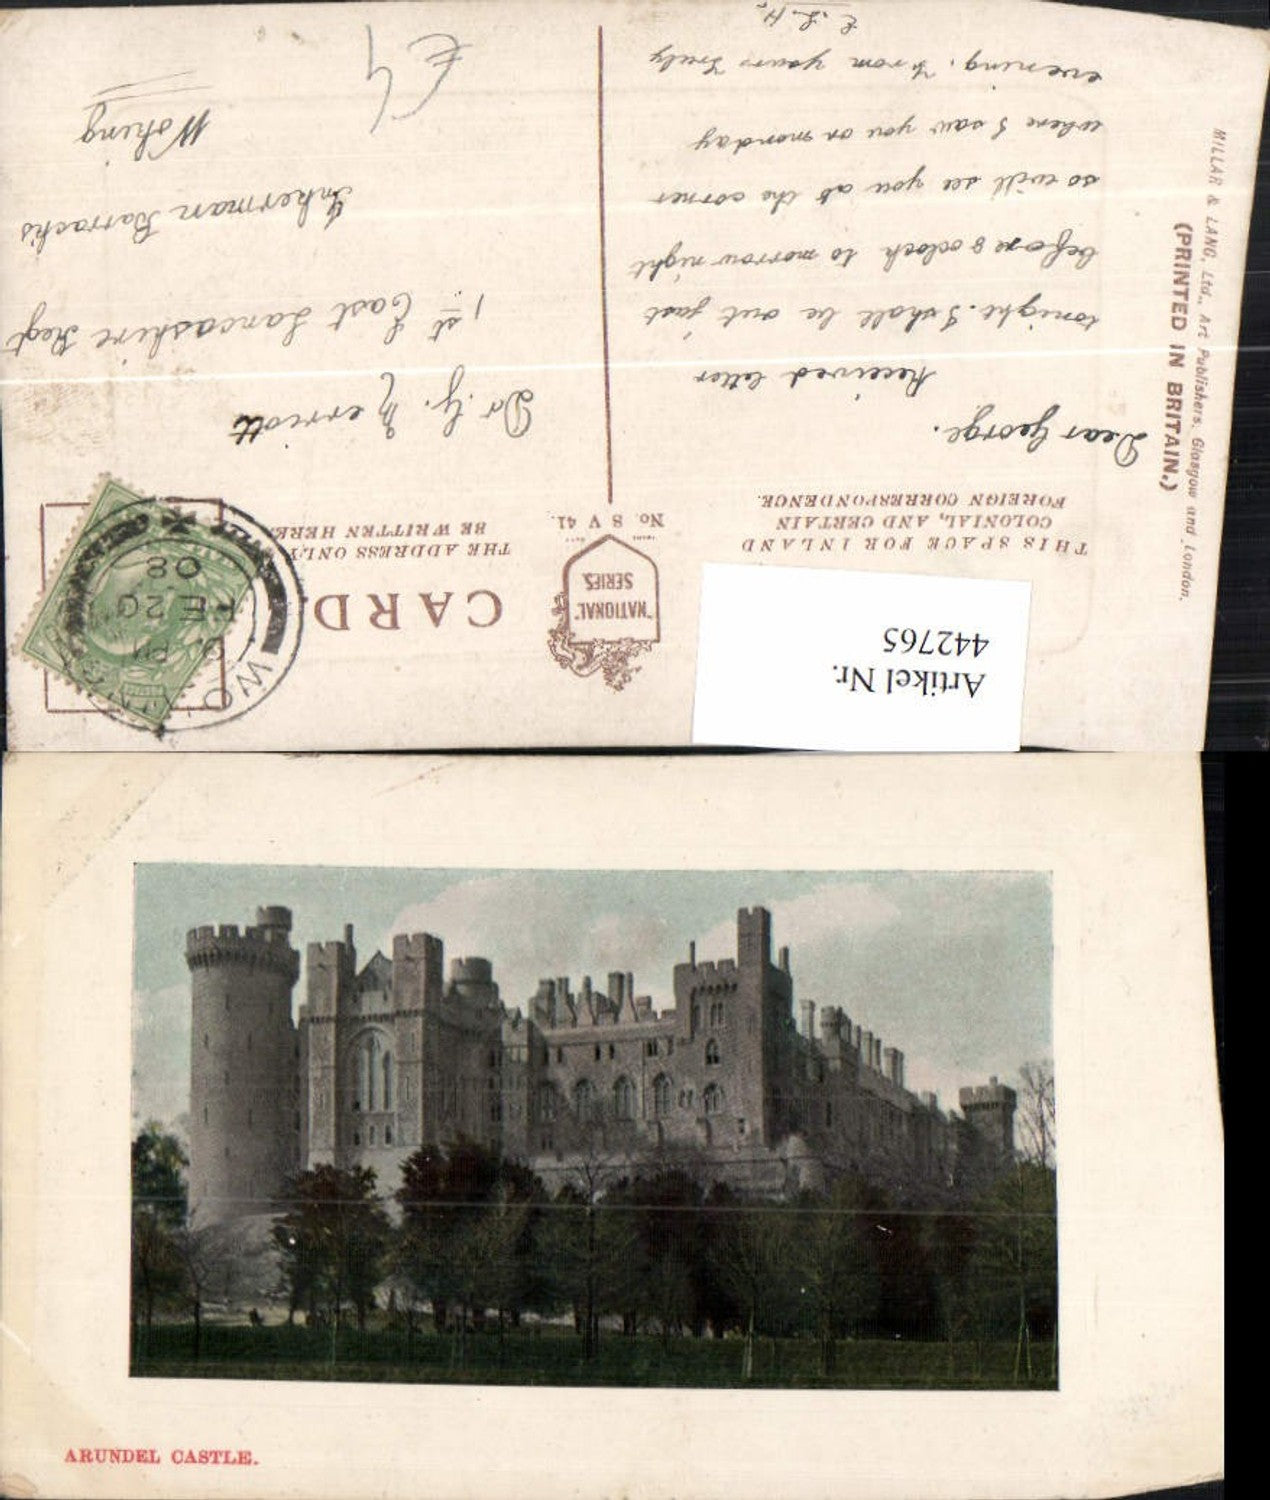 MILLAR & LANG, Ltd., Art Publishers, Glasgow and London.
(PRINTED IN BRITAIN.)
Artikel Nr.
442765
"NATIONAL"
SERIES.
No. S V 41.
CARD
THIS SPACE FOR INLAND
COLONIAL, AND CERTAIN
FOREIGN CORRESPONDENCE.
THE ADDRESS ONLY
BE WRITTEN HERE.
WO
PM
FE 20
08
Dear George.
Received letter
tonight. I shall be out just
before 8 oclock to morrow night
so will see you at the corner
where I saw you on monday
evening. From yours Truly
E. L. H.
Dr. G. Merriott
1st East Lancashire Regt
Inkerman Barracks
Woking
£4
ARUNDEL CASTLE.